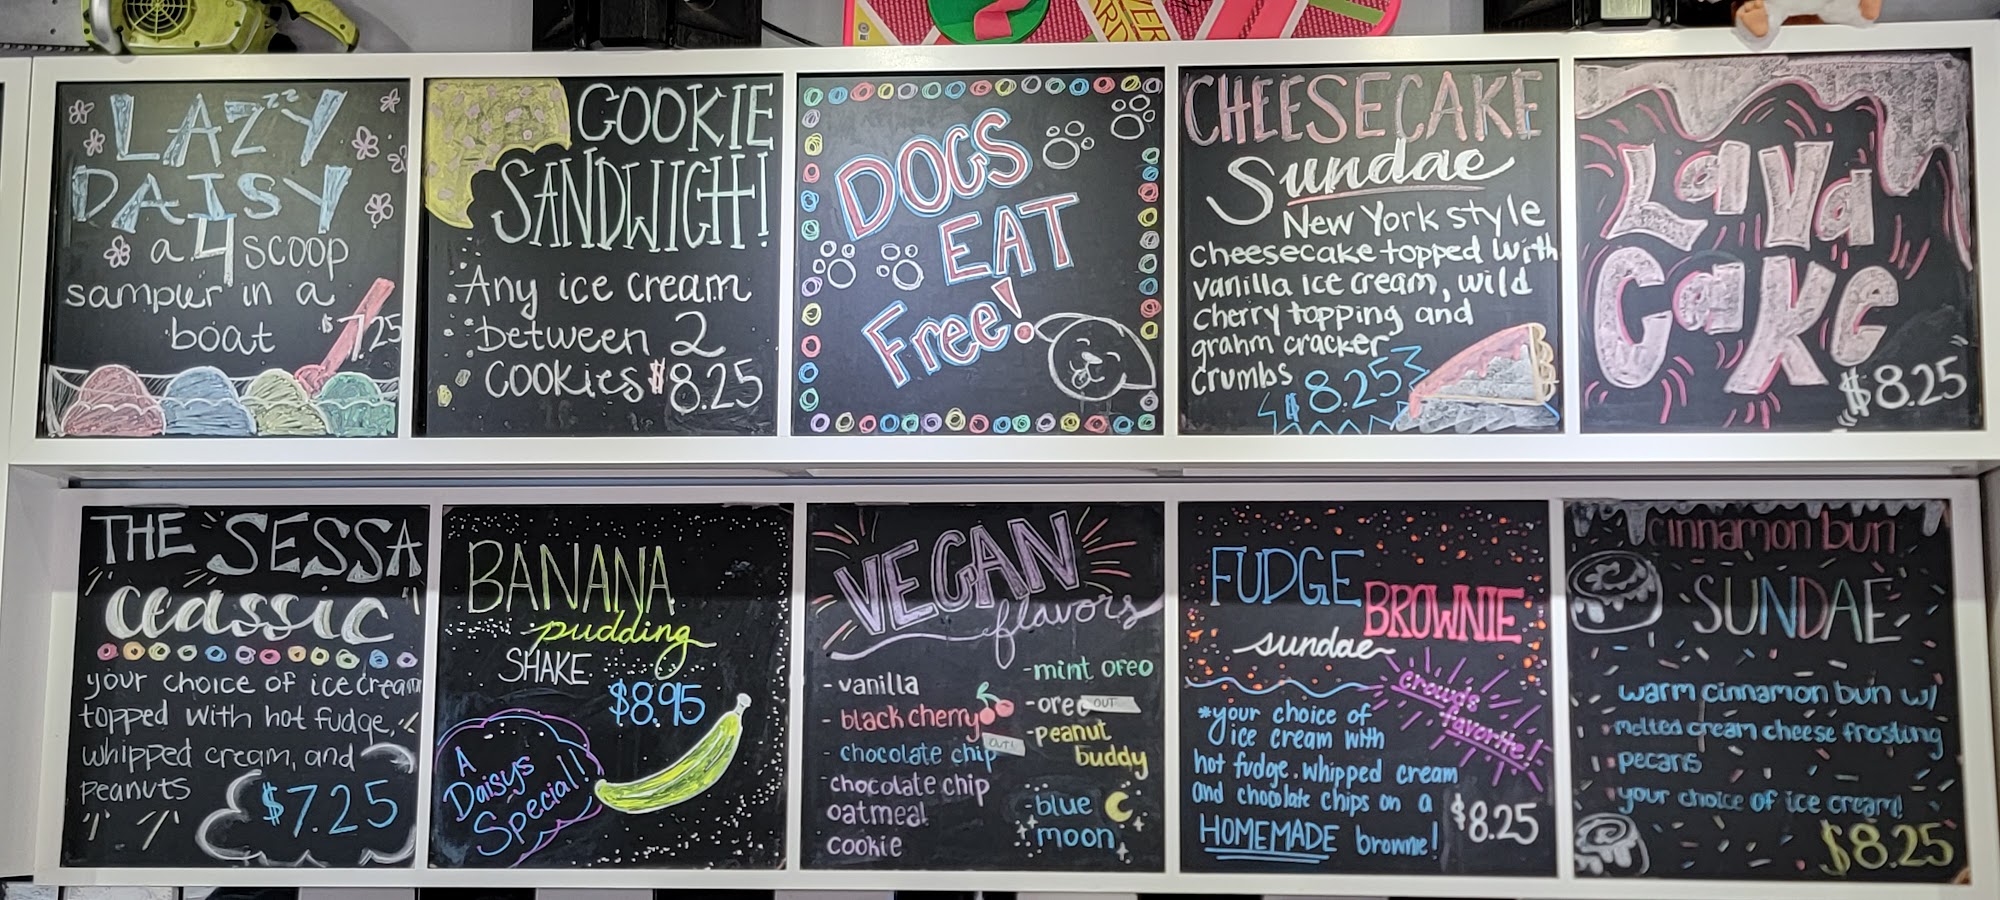 LAZY
zz
DAISY
a 4 scoop
sampler in a
boat $7.25
COOKIE
SANDWICH!
Any ice cream
between 2
cookies $8.25
DOGS
EAT
Free!
CHEESECAKE
Sundae
New York style
cheesecake topped with
vanilla ice cream, wild
cherry topping and
grahm cracker
crumbs $8.25
LaVa
CaKe
$8.25
THE SESSA
classic
your choice of ice cream
topped with hot fudge,
whipped cream, and
peanuts
$7.25
BANANA
pudding
SHAKE
$8.95
A
Daisys
Special!
VEGAN
flavors
- vanilla
- black cherry
- chocolate chip OUT!
- chocolate chip
oatmeal
cookie
- mint oreo
- oreo OUT
- peanut
buddy
- blue
moon
FUDGE
BROWNIE
sundae
crowd's
favorite!
*your choice of
ice cream with
hot fudge, whipped cream
and chocolate chips on a
HOMEMADE brownie!
$8.25
cinnamon bun
SUNDAE
warm cinnamon bun w/
melted cream cheese frosting
pecans
your choice of ice cream!
$8.25